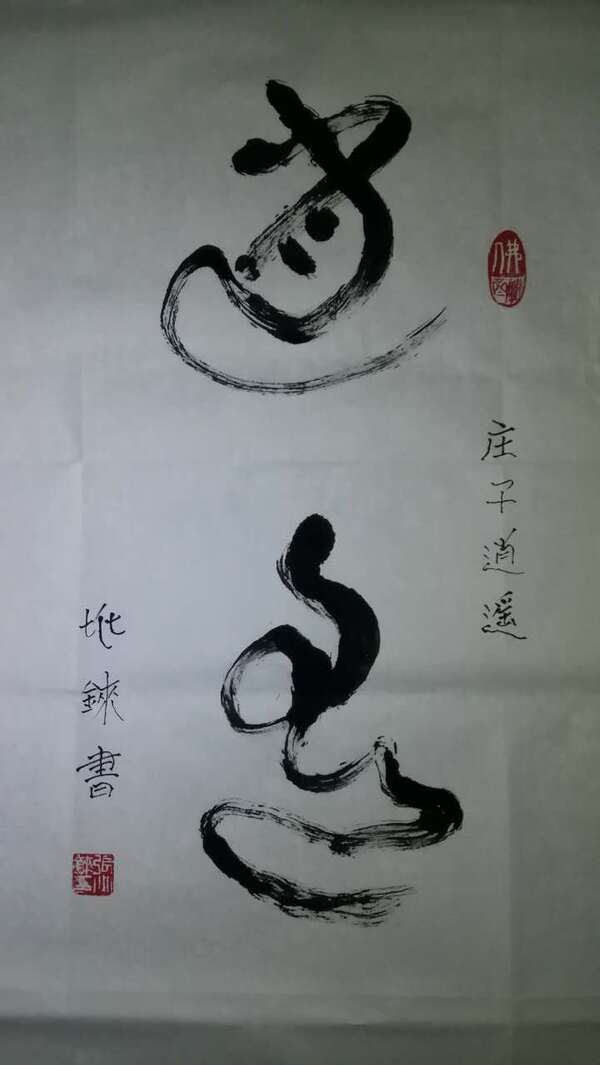 佛
庄子逍遥
逍遥
書